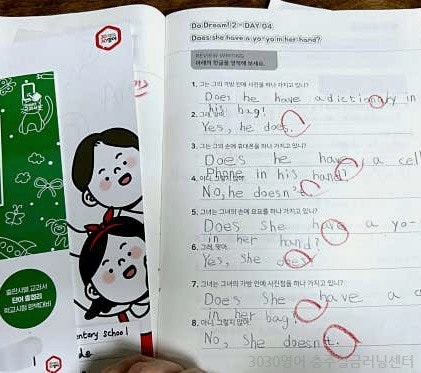 Do Dream! 2 - DAY 04
Does she have a yo-yo in her hand?
REVIEW WRITING
아래의 한글을 영작해 보세요.
1. 그는 그의 가방 안에 사전을 하나 가지고 있니?
Does he have a dictinary in
his bag!
2. 그래, 맞아.
Yes, he does.
3. 그는 그의 손에 휴대폰을 하나 가지고 있니?
Does he have a cell
Phone in his hand?
4. 아니, 그렇지 않아.
No, he doesn't.
5. 그녀는 그녀의 손에 요요를 하나 가지고 있니?
Does She have a yo-
in her hand?
6. 그래, 맞아.
Yes, She does.
7. 그녀는 그녀의 가방 안에 사전을 하나 가지고 있니?
Does She have a
in her bag?
8. 아니, 그렇지 않아.
No, She doesn't.
출판사별 교과서
단어 총정리
학교시험 완벽대비
entary school
3030영어 충주일금러닝센터